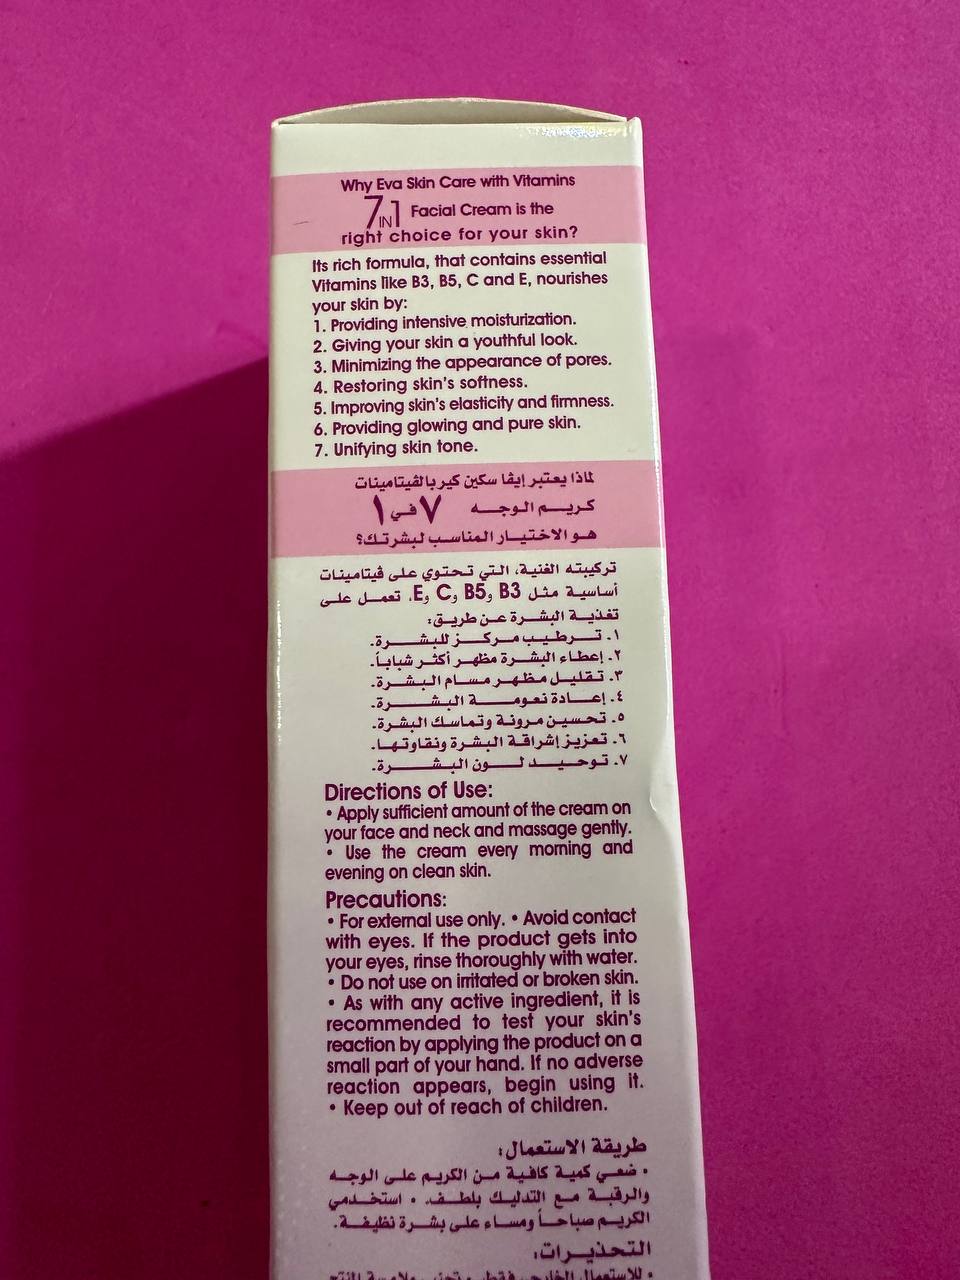 Why Eva Skin Care with Vitamins
7 IN 1 Facial Cream is the
right choice for your skin?
Its rich formula, that contains essential
Vitamins like B3, B5, C and E, nourishes
your skin by:
1. Providing intensive moisturization.
2. Giving your skin a youthful look.
3. Minimizing the appearance of pores.
4. Restoring skin's softness.
5. Improving skin's elasticity and firmness.
6. Providing glowing and pure skin.
7. Unifying skin tone.
لماذا يعتبر إيڤا سكين كير بالڤيتامينات
كريم الوجه ٧ في ١
هو الاختيار المناسب لبشرتك؟
تركيبته الغنية، التي تحتوي على ڤيتامينات
أساسية مثل B3 وB5 وC وE، تعمل على
تغذية البشرة عن طريق:
١. ترطيب مركز للبشرة.
٢. إعطاء البشرة مظهر أكثر شباباً.
٣. تقليل مظهر مسام البشرة.
٤. إعادة نعومة البشرة.
٥. تحسين مرونة وتماسك البشرة.
٦. تعزيز إشراقة البشرة ونقاوتها.
٧. توحيد لون البشرة.
Directions of Use:
• Apply sufficient amount of the cream on
your face and neck and massage gently.
• Use the cream every morning and
evening on clean skin.
Precautions:
• For external use only. • Avoid contact
with eyes. If the product gets into
your eyes, rinse thoroughly with water.
• Do not use on irritated or broken skin.
• As with any active ingredient, it is
recommended to test your skin's
reaction by applying the product on a
small part of your hand. If no adverse
reaction appears, begin using it.
• Keep out of reach of children.
طريقة الاستعمال:
• ضعي كمية كافية من الكريم على الوجه
والرقبة مع التدليك بلطف. • استخدمي
الكريم صباحاً ومساء على بشرة نظيفة.
التحذيرات:
• للاستعمال الخارجي فقط. • تجنبي ملامسة المنتج